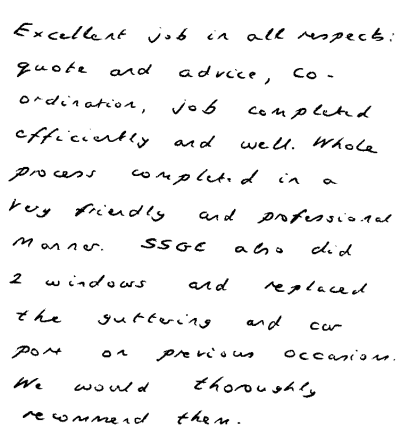 Excellent job in all respects:
quote and advice, co-
ordination, job completed
efficiently and well. Whole
process completed in a
very friendly and professional
manner. SSGC also did
2 windows and replaced
the guttering and car
port on previous occasions.
We would thoroughly
recommend them.